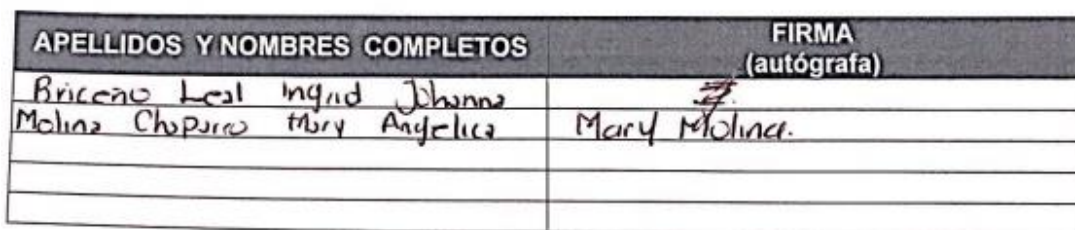 APELLIDOS Y NOMBRES COMPLETOS
FIRMA
(autógrafa)
Briceño Leal Ingrid Johanna
Molina Chaparro Mary Angelica
Mary Molina.